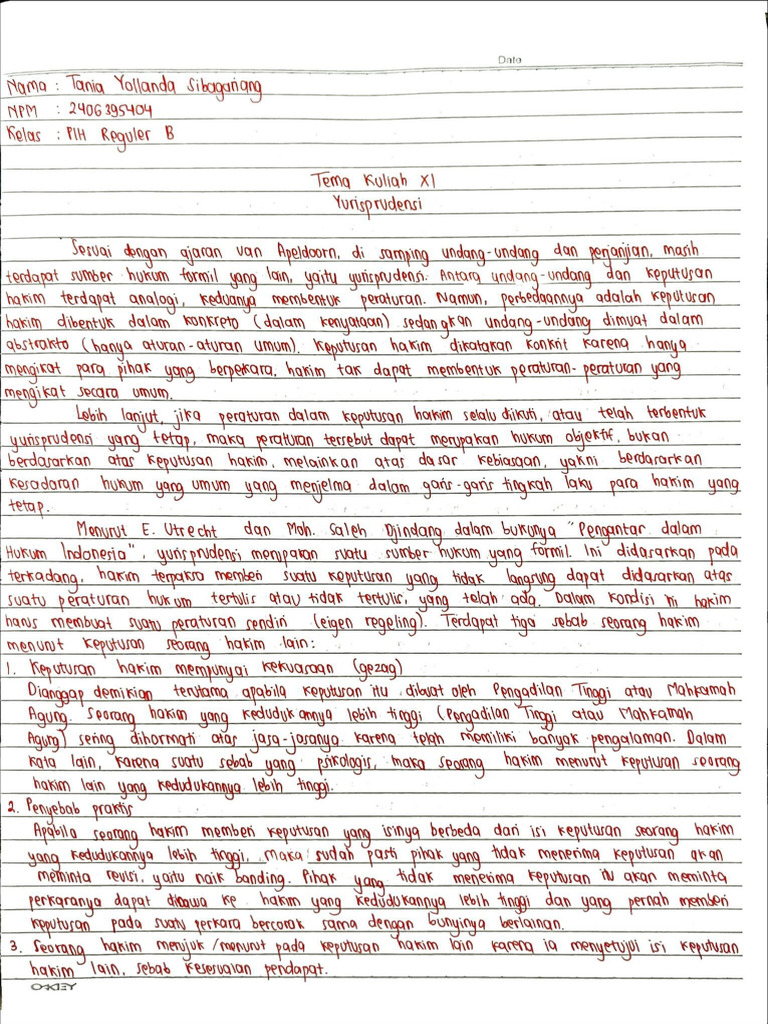 Date
Nama : Tania Yollanda Sibagariang
NPM : 2406395404
Kelas : PIH Reguler B
Tema Kuliah XI
Yurisprudensi
Sesuai dengan ajaran van Apeldoorn, di samping undang-undang dan perjanjian, masih
terdapat sumber hukum formil yang lain, yaitu yurisprudensi. Antara undang-undang dan keputusan
hakim terdapat analogi, keduanya membentuk peraturan. Namun, perbedaannya adalah keputusan
hakim dibentuk dalam konkreto (dalam kenyataan) sedangkan undang-undang dimuat dalam
abstrakto (hanya aturan-aturan umum). Keputusan hakim dikatakan konkrit karena hanya
mengikat para pihak yang berperkara, hakim tak dapat membentuk peraturan-peraturan yang
mengikat secara umum.
Lebih lanjut, jika peraturan dalam keputusan hakim selalu diikuti, atau telah terbentuk
yurisprudensi yang tetap, maka peraturan tersebut dapat merupakan hukum objektif, bukan
berdasarkan atas keputusan hakim, melainkan atas dasar kebiasaan, yakni berdasarkan
kesadaran hukum yang umum yang menjelma dalam garis-garis tingkah laku para hakim yang
tetap.
Menurut E. Utrecht dan Moh. Saleh Djindang dalam bukunya "Pengantar dalam
Hukum Indonesia", yurisprudensi merupakan suatu sumber hukum yang formil. Ini didasarkan pada
terkadang, hakim terpaksa memberi suatu keputusan yang tidak langsung dapat didasarkan atas
suatu peraturan hukum tertulis atau tidak tertulis, yang telah ada. Dalam kondisi ini hakim
harus membuat suatu peraturan sendiri (eigen regeling). Terdapat tiga sebab seorang hakim
menurut keputusan seorang hakim lain:
1. Keputusan hakim mempunyai kekuasaan (gezag)
Dianggap demikian terutama apabila keputusan itu dibuat oleh Pengadilan Tinggi atau Mahkamah
Agung. Seorang hakim yang kedudukannya lebih tinggi (Pengadilan Tinggi atau Mahkamah
Agung) sering dihormati atas jasa-jasanya karena telah memiliki banyak pengalaman. Dalam
kata lain, karena suatu sebab yang psikologis, maka seorang hakim menurut keputusan seorang
hakim lain yang kedudukannya lebih tinggi.
2. Penyebab praktis
Apabila seorang hakim memberi keputusan yang isinya berbeda dari isi keputusan seorang hakim
yang kedudukannya lebih tinggi, maka sudah pasti pihak yang tidak menerima keputusan akan
meminta revisi, yaitu naik banding. Pihak yang tidak menerima keputusan itu akan meminta
perkaranya dapat dibawa ke hakim yang kedudukannya lebih tinggi dan yang pernah memberi
keputusan pada suatu perkara bercorak sama dengan bunyinya berlainan.
3. Seorang hakim menjuk/menurut pada keputusan hakim lain karena ia menyetujui isi keputusan
hakim lain, sebab kesesuaian pendapat.